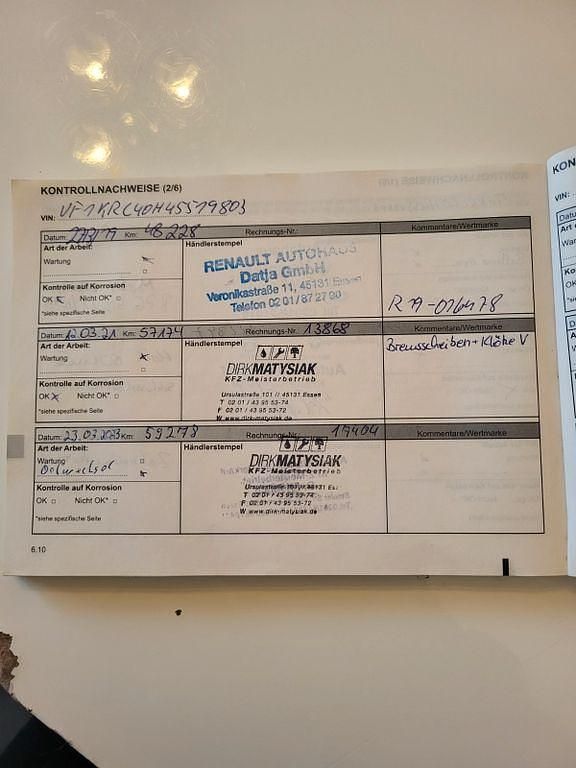 KONTROLLNACHWEISE (2/6)
VIN: VF1KRC40H45519803
Datum: Km: 48 228 Rechnungs-Nr.: Kommentare/Wertmarke
Art der Arbeit:
Wartung
Kontrolle auf Korrosion
OK Nicht OK*
*siehe spezifische Seite
Händlerstempel
RENAULT AUTOHAUS
Datja GmbH
Veronikastraße 11, 45131 Essen
Telefon 02 01/87 27 00
R19-016478
Datum: 12.03.21 Km: 57174 Rechnungs-Nr.: 13868 Kommentare/Wertmarke
Art der Arbeit:
Wartung
Kontrolle auf Korrosion
OK Nicht OK*
*siehe spezifische Seite
Händlerstempel
DIRKMATYSIAK
KFZ-Meisterbetrieb
Ursulastraße 101 // 45131 Essen
T 02 01 / 43 95 53-74
F 02 01 / 43 95 53-72
W www.dirk-matysiak.de
Bremsscheiben + Klötze V
Datum: 23.03.2023 Km: 59278 Rechnungs-Nr.: 17404 Kommentare/Wertmarke
Art der Arbeit:
Wartung
Ölwechsel
Kontrolle auf Korrosion
OK Nicht OK*
*siehe spezifische Seite
Händlerstempel
DIRKMATYSIAK
KFZ-Meisterbetrieb
Ursulastraße 101 // 45131
T 02 01 / 43 95 53-74
F 02 01 / 43 95 53-72
W www.dirk-matysiak.de
6.10
KON
VIN: